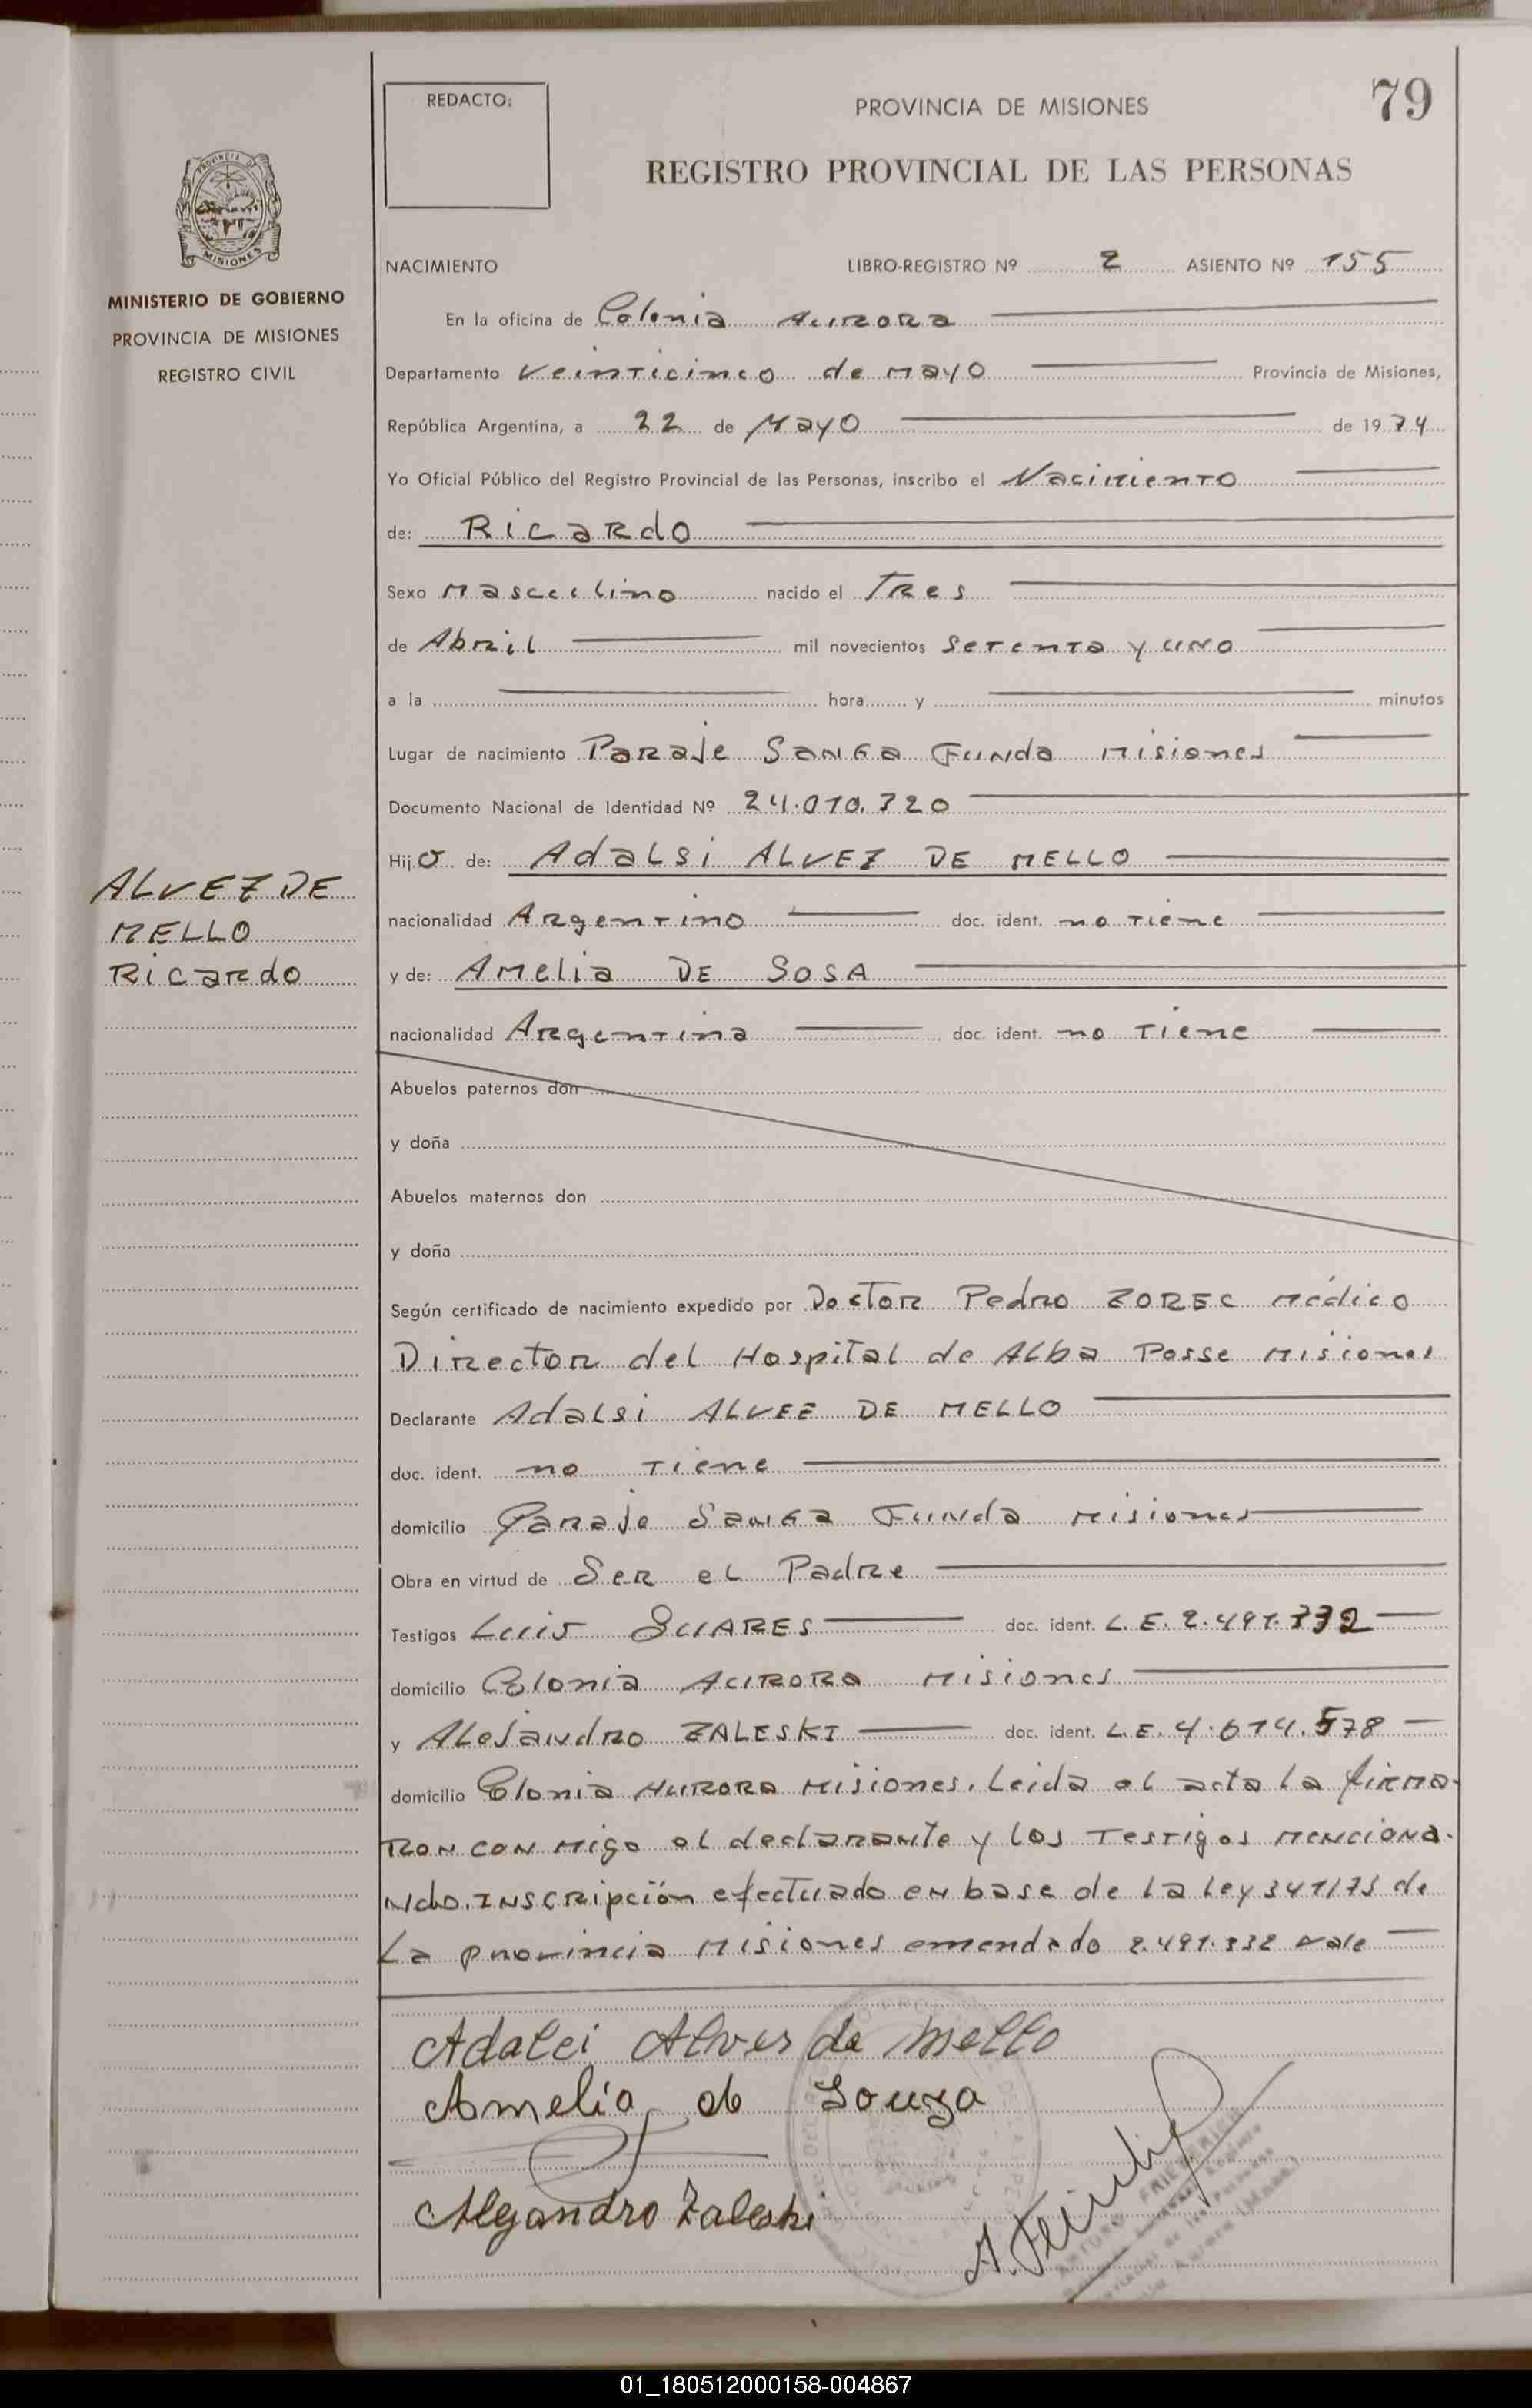 REDACTO:
PROVINCIA DE MISIONES
79
REGISTRO PROVINCIAL DE LAS PERSONAS
PROVINCIA DE
MISIONES
MINISTERIO DE GOBIERNO
PROVINCIA DE MISIONES
REGISTRO CIVIL
NACIMIENTO LIBRO-REGISTRO Nº 2 ASIENTO Nº 155
En la oficina de Colonia Aurora
Departamento Veinticinco de Mayo Provincia de Misiones,
República Argentina, a 22 de Mayo de 1974
Yo Oficial Público del Registro Provincial de las Personas, inscribo el Nacimiento
de: Ricardo
Sexo Masculino nacido el Tres
de Abril mil novecientos Setenta y uno
a la hora y minutos
Lugar de nacimiento Paraje Sanga Funda Misiones
Documento Nacional de Identidad Nº 24.010.720
Hijo de: Adalsi ALVEZ DE MELLO
ALVEZ DE
MELLO
Ricardo
nacionalidad Argentino doc. ident. no tiene
y de: Amelia DE SOSA
nacionalidad Argentina doc. ident. no tiene
Abuelos paternos don
y doña
Abuelos maternos don
y doña
Según certificado de nacimiento expedido por Doctor Pedro ZOREC Médico
Director del Hospital de Alba Posse Misiones
Declarante Adalsi ALVEZ DE MELLO
doc. ident. no tiene
domicilio Paraje Sanga Funda Misiones
Obra en virtud de Ser el Padre
Testigos Luis SUARES doc. ident. L.E. 2.491.332
domicilio Colonia Aurora Misiones
y Alejandro ZALESKI doc. ident. L.E. 4.614.578
domicilio Colonia Aurora Misiones. Leida el acta la firma-
ron con migo el declarante y los testigos menciona-
ndo. Inscripción efectuado en base de la Ley 341/73 de
La provincia Misiones emendado 2.491.332 vale
Adalci Alves de Mello
Amelia de Souza
Alejandro Zaleski
ARTURO FRIEDERICH
01_180512000158-004867